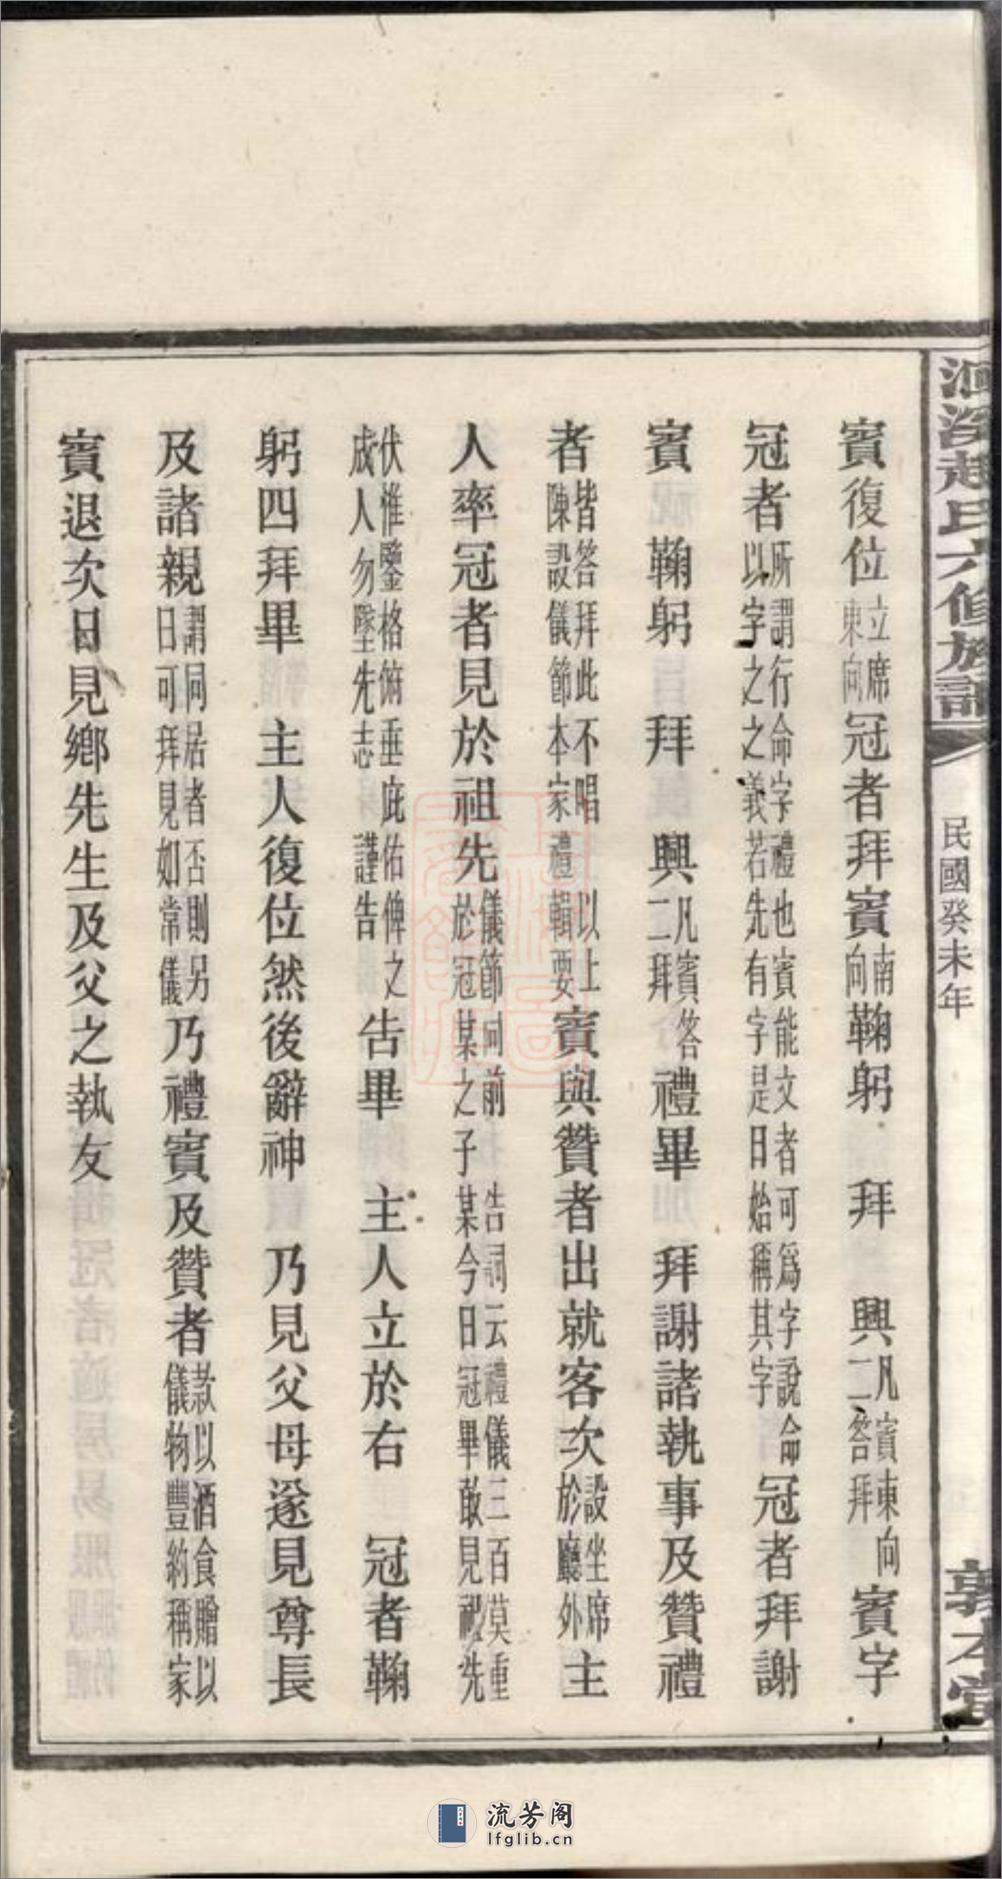 洄溪趙氏六修族譜
民國癸未年
敦本堂
賓復位立席東向冠者拜賓南向鞠躬 拜 興凡二賓答東拜向 賓字
冠者所謂行命字禮也賓能文者可為字說命以字之之義若先有字是日始稱其字冠者拜謝
賓 鞠躬 拜 興凡二賓拜答禮畢 拜謝諸執事及贊禮
者皆答拜此不唱 以上陳設儀節本家禮輯要賓與贊者出就客次設坐席於廳外主
人率冠者見於祖先儀節向前 告詞云禮儀三百莫重於冠某之子某今日冠畢敢見祖先
伏惟鑒格俯垂庇佑俾之成人勿墜先志 謹告告畢 主人立於右 冠者鞠
躬四拜畢 主人復位然後辭神 乃見父母遂見尊長
及諸親謂同居者否則另日可拜見如常儀乃禮賓及贊者款以酒食贈以儀物豐約稱家
賓退次日見鄉先生及父之執友
流芳阁
lfglib.cn